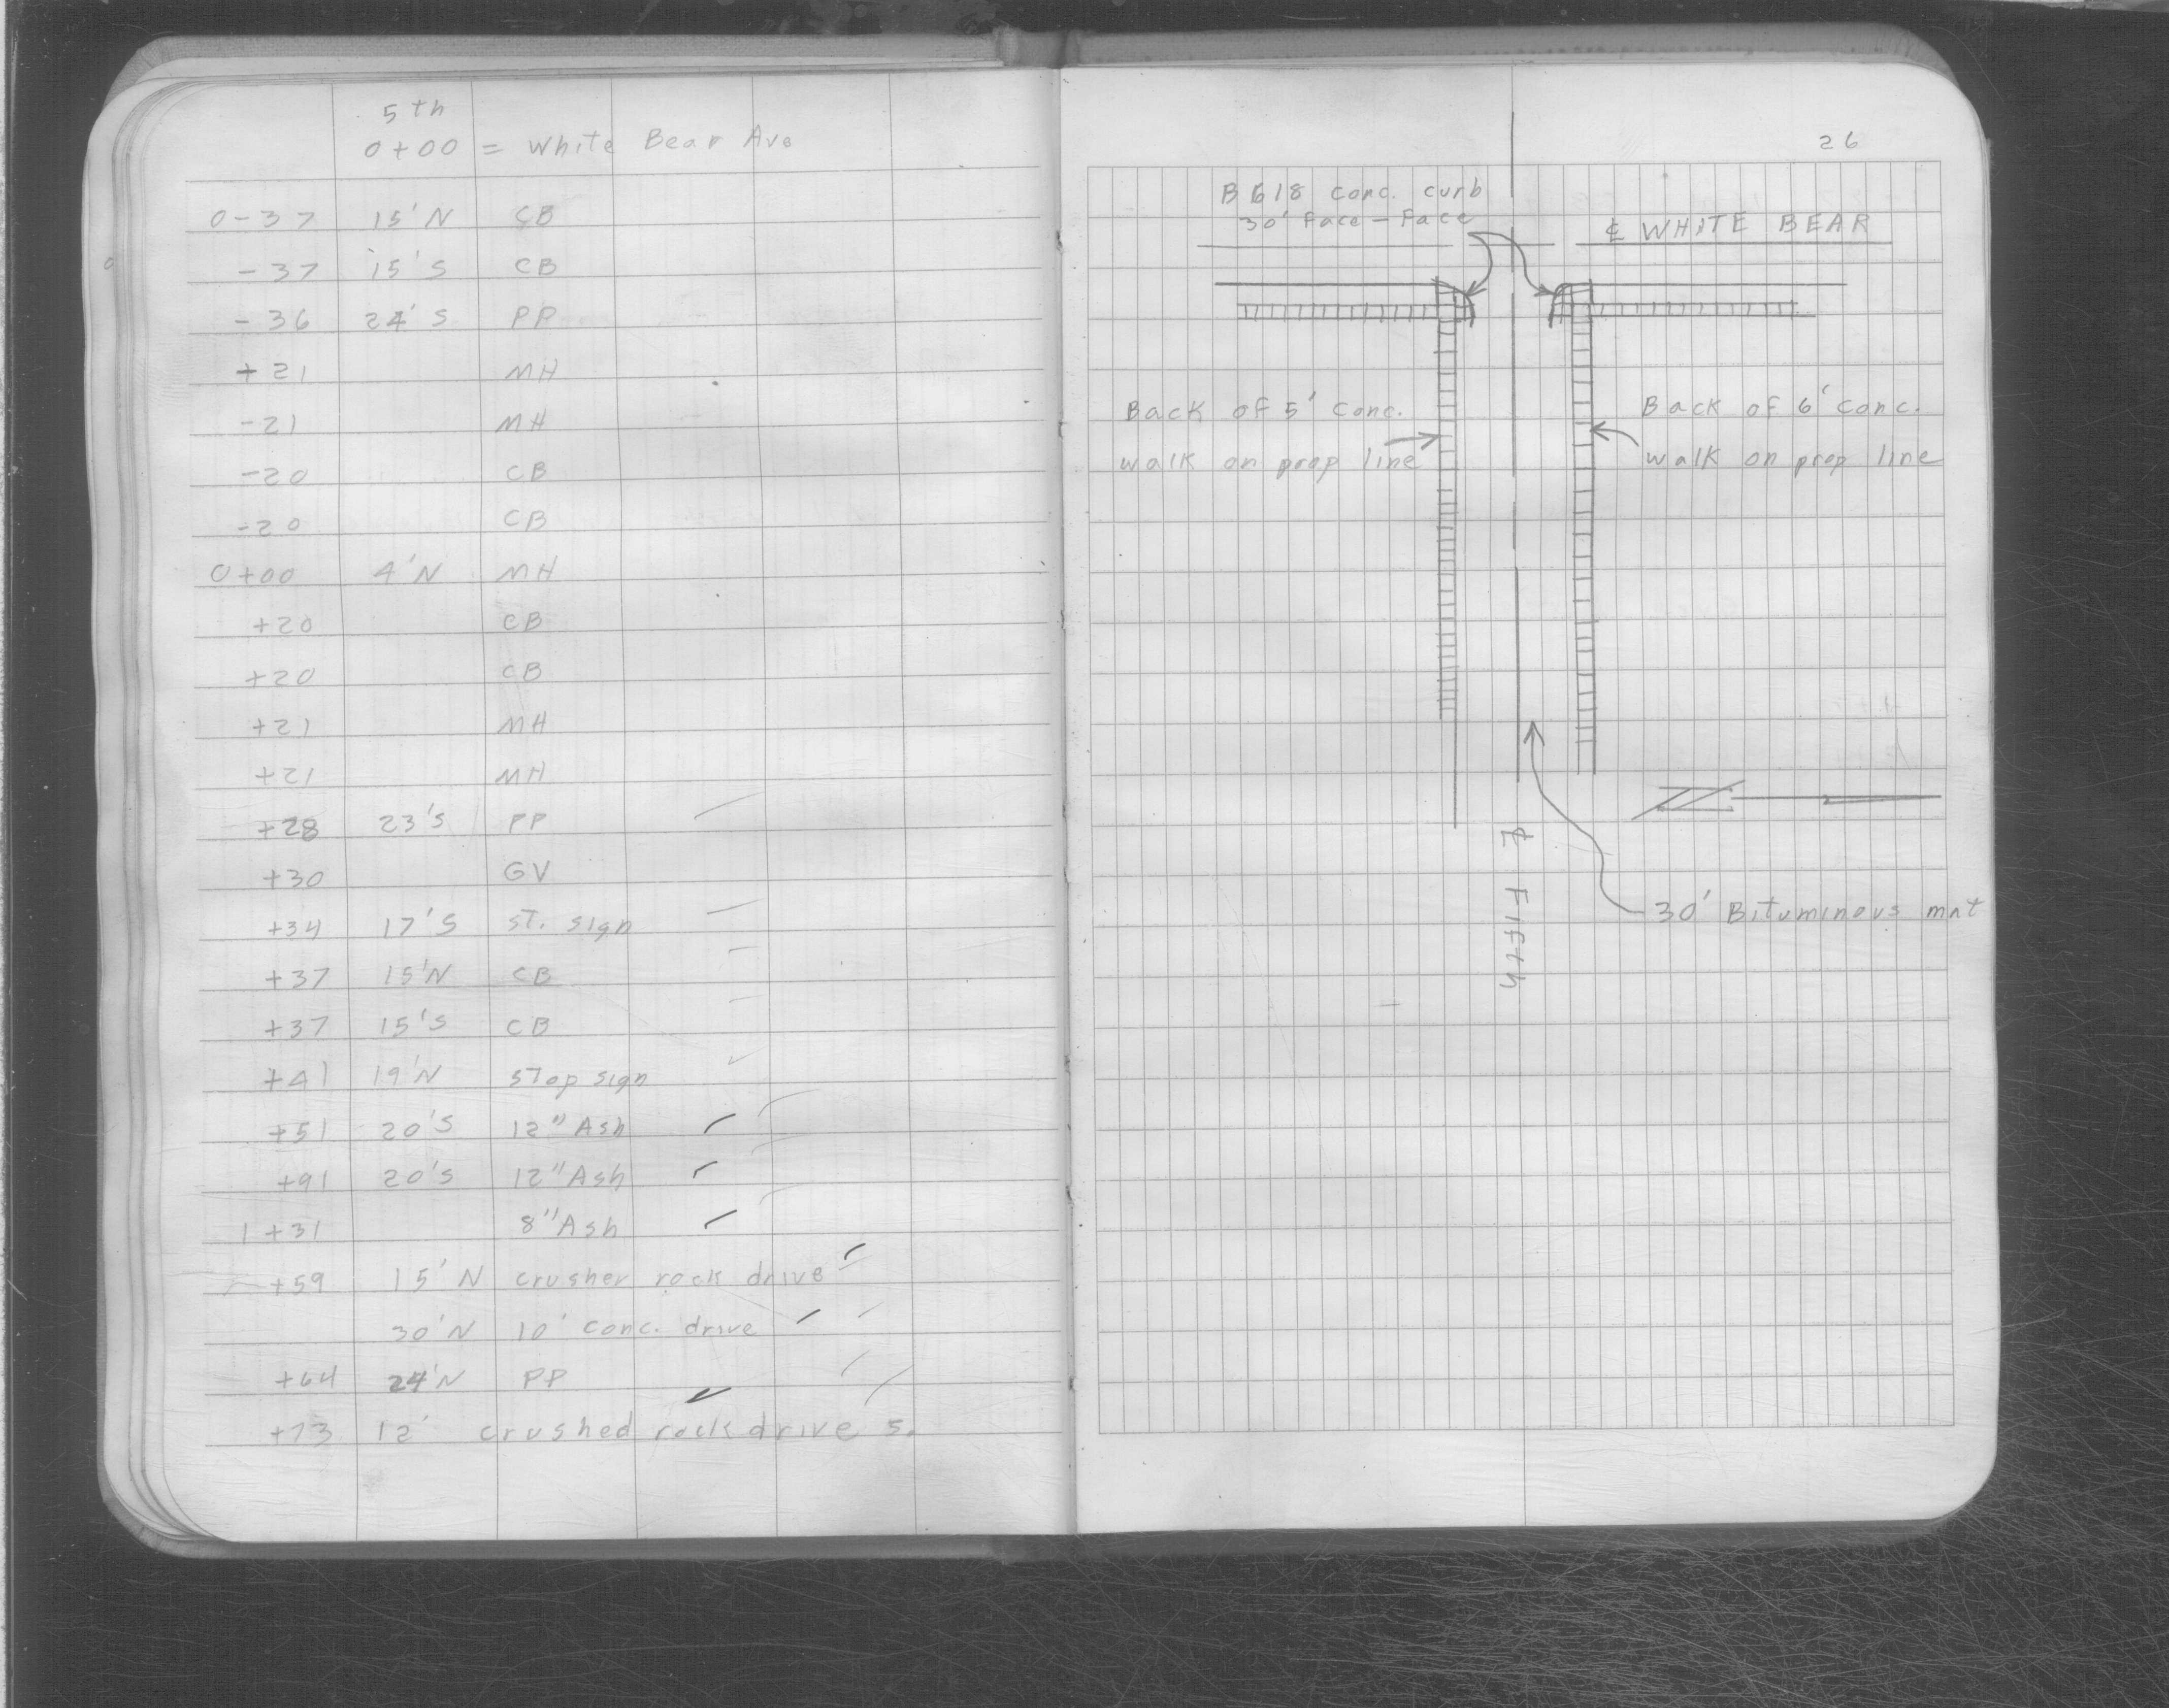 5th
0+00 = White Bear Ave
0-37 15'N CB
-37 15'S CB
-36 24'S PP
+21 MH
-21 MH
-20 CB
-20 CB
0+00 4'N MH
+20 CB
+20 CB
+21 MH
+21 MH
+28 23'S PP
+30 GV
+34 17'S ST. sign
+37 15'N CB
+37 15'S CB
+41 19'N STop sign
+51 20'S 12" Ash
+91 20'S 12" Ash
1+31 8" Ash
+59 15'N crusher rock drive
30'N 10' conc. drive
+64 24'N PP
+73 12' crushed rock drive S.
26
B618 conc. curb
30' Face - Face
℄ WHITE BEAR
Back of 5' conc.
walk on prop line
Back of 6' conc.
walk on prop line
℄ Fifth
30' Bituminous mat